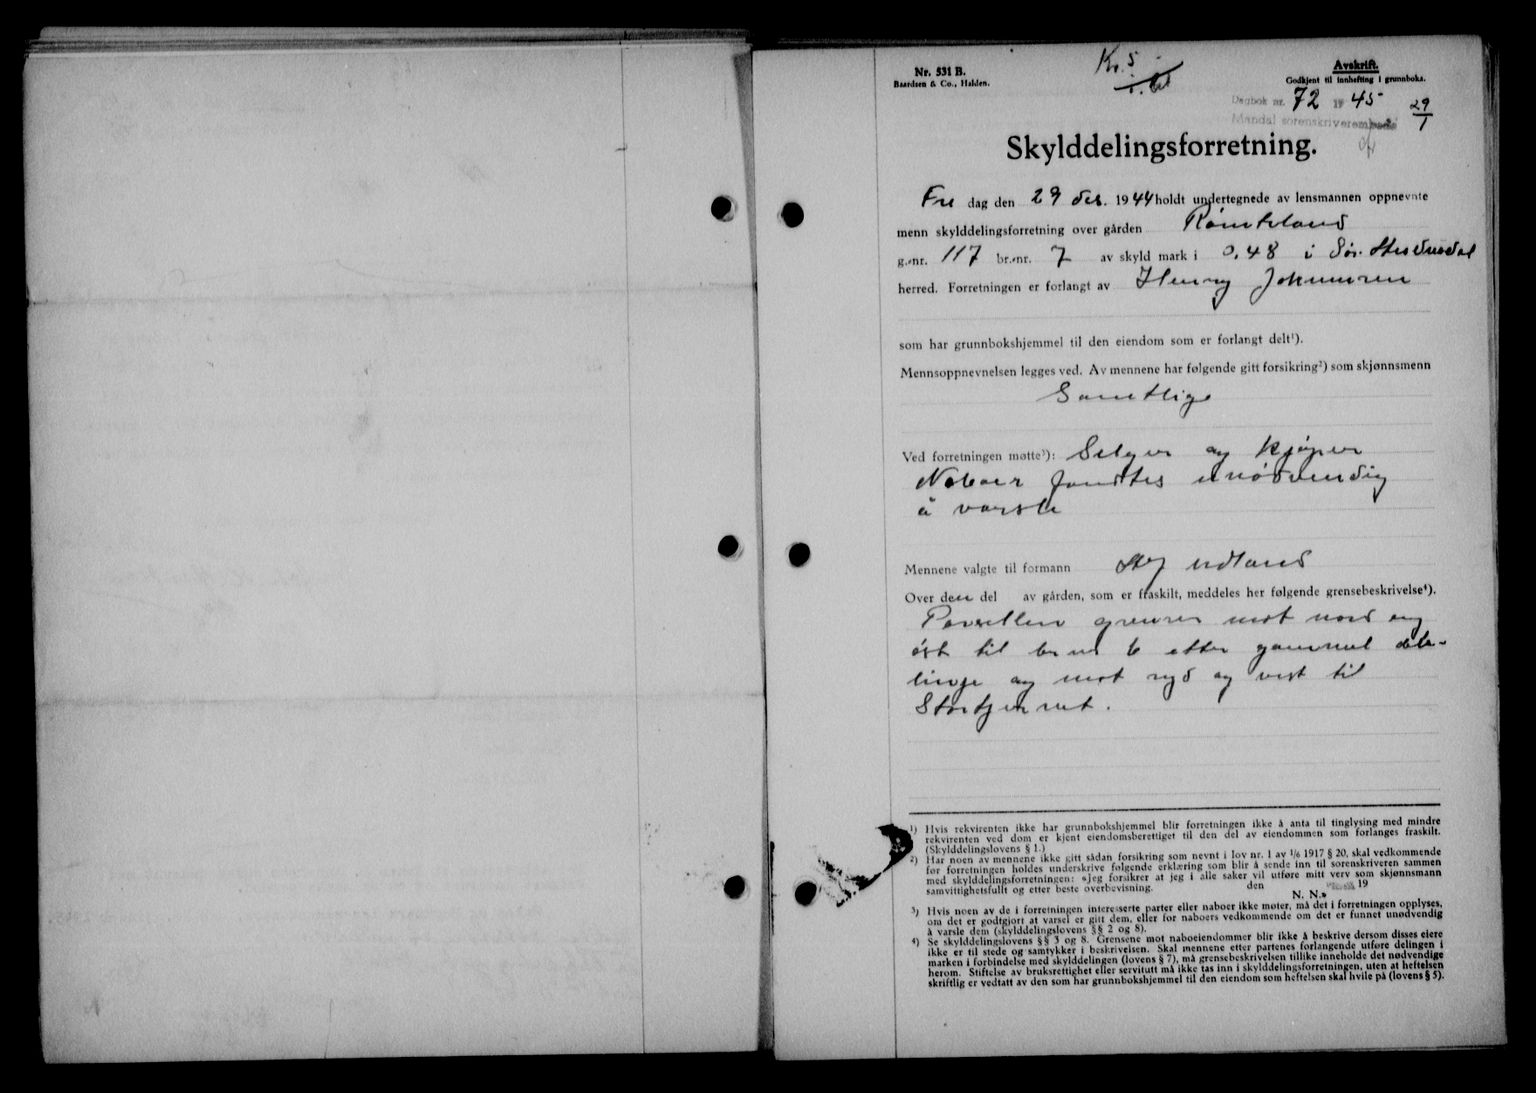 Nr. 531 B.
Baardsen & Co., Halden.
Kr. 5
Avskrift.
Godkjent til innhefting i grunnboka.
Dagbok nr. 72 19 45 29/1
Mandal sorenskriverembede
Skylddelingsforretning.
Fre dag den 29 des. 1944 holdt undertegnede av lensmannen oppnevnte
menn skylddelingsforretning over gården
g.-nr. 117 br.-nr. 7 av skyld mark i 0,48 i Sør-
herred. Forretningen er forlangt av Henry
som har grunnbokshjemmel til den eiendom som er forlangt delt¹).
Mennsoppnevnelsen legges ved. Av mennene har følgende gitt forsikring²) som skjønnsmenn
Samtlige
Ved forretningen møtte³): Selger og kjøper
Naboer fandtes unødvendig
å varsle
Mennene valgte til formann
Over den del av gården, som er fraskilt, meddeles her følgende grensebeskrivelse⁴).
Parsellen grenser mot nord og
øst til br nr 6 etter gammel dele-
linje og mot syd og vest til
Stortjernet.
¹) Hvis rekvirenten ikke har grunnbokshjemmel blir forretningen ikke å anta til tinglysing med mindre
rekvirenten ved dom er kjent eiendomsberettiget til den del av eiendommen som forlanges fraskilt.
(Skylddelingslovens § 1.)
²) Har noen av mennene ikke gitt sådan forsikring som nevnt i lov nr. 1 av 1/6 1917 § 20, skal vedkommende
før forretningen holdes underskrive følgende erklæring som blir å sende inn til sorenskriveren sammen
med skylddelingsforretningen: »Jeg forsikrer at jeg i alle saker vil utføre mitt verv som skjønnsmann
samvittighetsfullt og etter beste overbevisning. den 19
N. N.»
³) Hvis noen av de i forretningen interesserte parter eller naboer ikke møter, må det i forretningen opplyses,
om det er godtgjort at varsel er gitt dem, eller for naboers vedkommende om det er funnet unødvendig
å varsle dem (skylddelingslovens §§ 2 og 8).
⁴) Se skylddelingslovens §§ 3 og 8. Grensene mot naboeiendommer blir ikke å beskrive dersom disses eiere
ikke er til stede og samtykker i beskrivelsen. Skal mennene etter partenes forlangende utføre delingen i
marken i forbindelse med skylddelingen (lovens § 7), må grensebeskrivelsen tillike inneholde det nødvendige
herom. Stiftelse av bruksrettighet eller servitutt må ikke tas inn i skylddelingsforretningen, uten at heftelsen
skriftlig er vedtatt av den som har grunnbokshjemmel til den eiendom som heftelsen skal hvile på (lovens § 5).